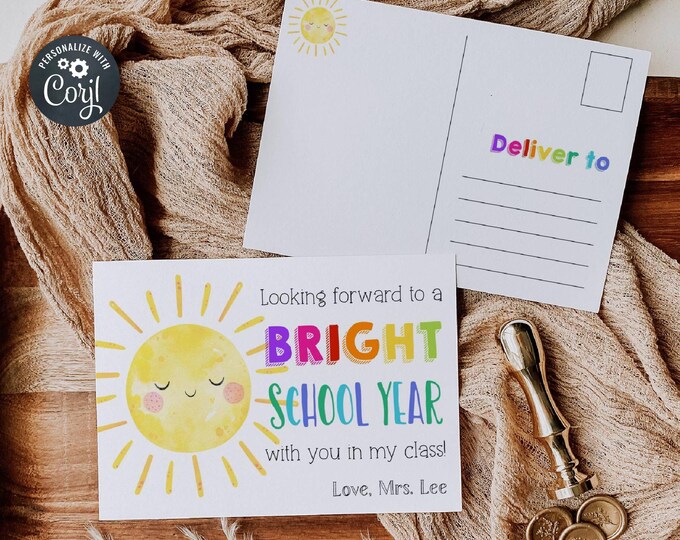 PERSONALIZE WITH
Corjl
Deliver to
Looking forward to a
BRIGHT
SCHOOL YEAR
with you in my class!
Love, Mrs. Lee